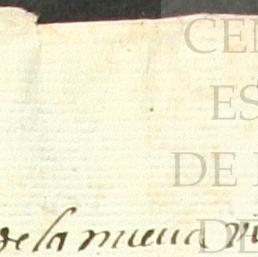 CEN
ES
DE
DE
de la nueva